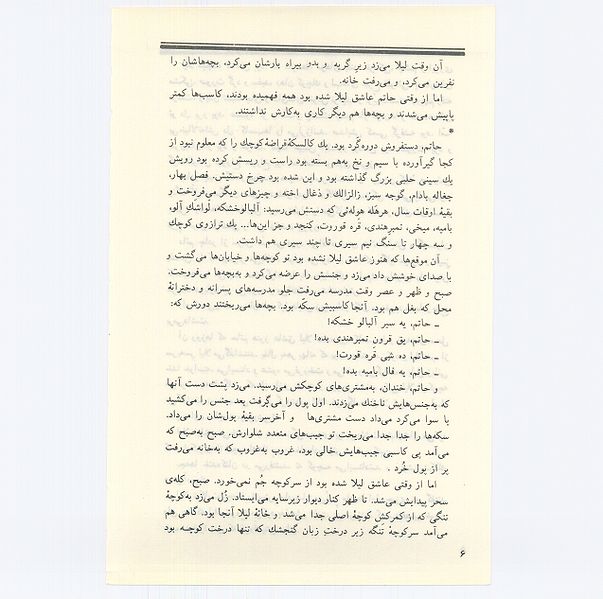 آن وقت لیلا می‌زد زیر گریه و بدو بیراه بارشان می‌کرد، بچه‌هاشان را
نفرین می‌کرد، و می‌رفت خانه.
اما از وقتی حاتم عاشق لیلا شده بود همه فهمیده بودند، کاسب‌ها کمتر
پاپیش می‌شدند و بچه‌ها هم دیگر کاری به‌کارش نداشتند.
*
حاتم، دستفروش دوره‌گرد بود. یك کالسکهٔ قراضهٔ کوچك را که معلوم نبود از
کجا گیرآورده با سیم و نخ به‌هم بسته بود راست و ریسش کرده بود رویش
یك سینی حلبی بزرگ گذاشته بود و این شده بود چرخ دستیش. فصل بهار،
چغاله بادام، گوجه سبز، زالزالك و ذغال اخته و چیزهای دیگر می‌فروخت و
بقیهٔ اوقات سال، هرهله هوله‌ئی که دستش می‌رسید: آلبالوخشکه، لواشكِ آلو،
بامیه، میخی، تمبرهندی، قره قوروت، کنجد و جز این‌ها... یك ترازوی کوچك
و سه چهار تا سنگ نیم سیری تا چند سیری هم داشت.
آن موقع‌ها که هنوز عاشق لیلا نشده بود تو کوچه‌ها و خیابان‌ها می‌گشت و
با صدای خوشش داد می‌زد و جنسش را عرضه می‌کرد و به‌بچه‌ها می‌فروخت.
صبح و ظهر و عصر وقت مدرسه می‌رفت جلو مدرسه‌های پسرانه و دخترانهٔ
محل که بغل هم بود. آنجا کاسبیش سکه بود. بچه‌ها می‌ریختند دورش که:
ـ حاتم، یه سیر آلبالو خشکه!
ـ حاتم، یِق قرون تمبرهندی بده!
ـ حاتم، ده شی قره قورت!
ـ حاتم، یه فال بامیه بده!
و حاتم، خندان، به‌مشتری‌های کوچکش می‌رسید. می‌زد پشت دست آنها
که به‌جنس‌هایش ناخنك می‌زدند. اول پول را می‌گرفت بعد جنس را می‌کشید
یا سوا می‌کرد می‌داد دست مشتری‌ها و آخرسر بقیهٔ پول‌شان را می‌داد.
سکه‌ها را جدا جدا می‌ریخت تو جیب‌های متعدد شلوارش. صبح به‌صبح که
می‌آمد پی کاسبی جیب‌هایش خالی بود، غروب به‌غروب که به‌خانه می‌رفت
پر از پول خُرد.
اما از وقتی عاشق لیلا شده بود از سرکوچه جُم نمی‌خورد. صبح، کله‌ی
سحر پیدایش می‌شد. تا ظهر کنار دیوار زیرسایه می‌ایستاد. زُل می‌زد به‌کوچهٔ
تنگی که از کمرکش کوچهٔ اصلی جدا می‌شد و خانهٔ لیلا آنجا بود. گاهی هم
می‌آمد سرکوچهٔ تنگه زیر درختِ زبان گنجشك که تنها درخت کوچه بود
۶